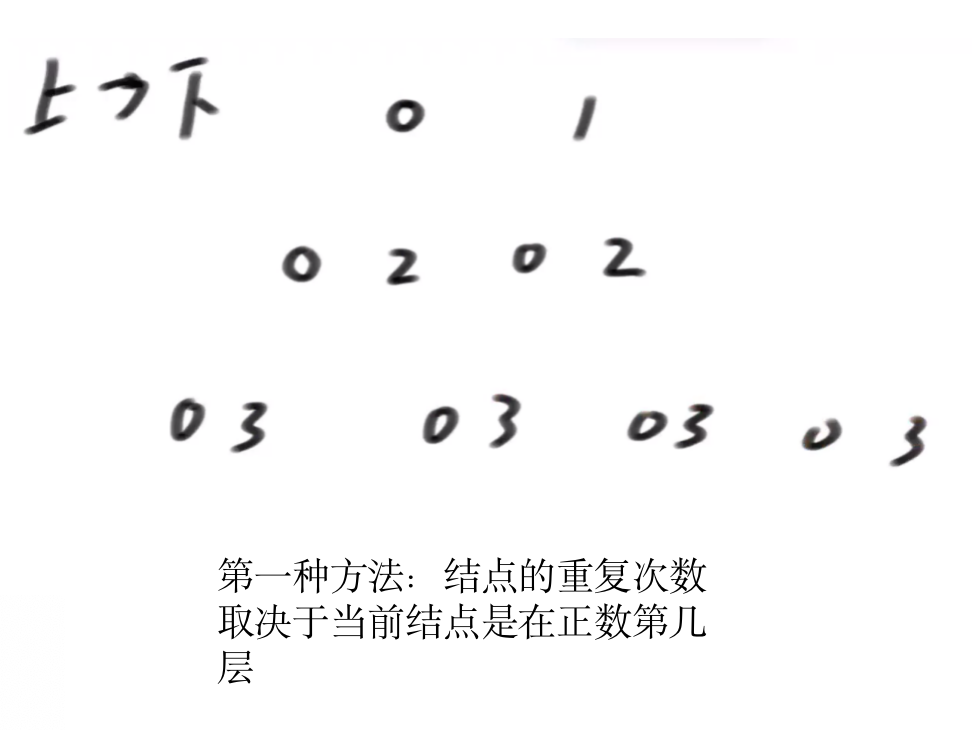 上→下 0 1
0 2 0 2
0 3 0 3 0 3 0 3
第一种方法：结点的重复次数
取决于当前结点是在正数第几
层